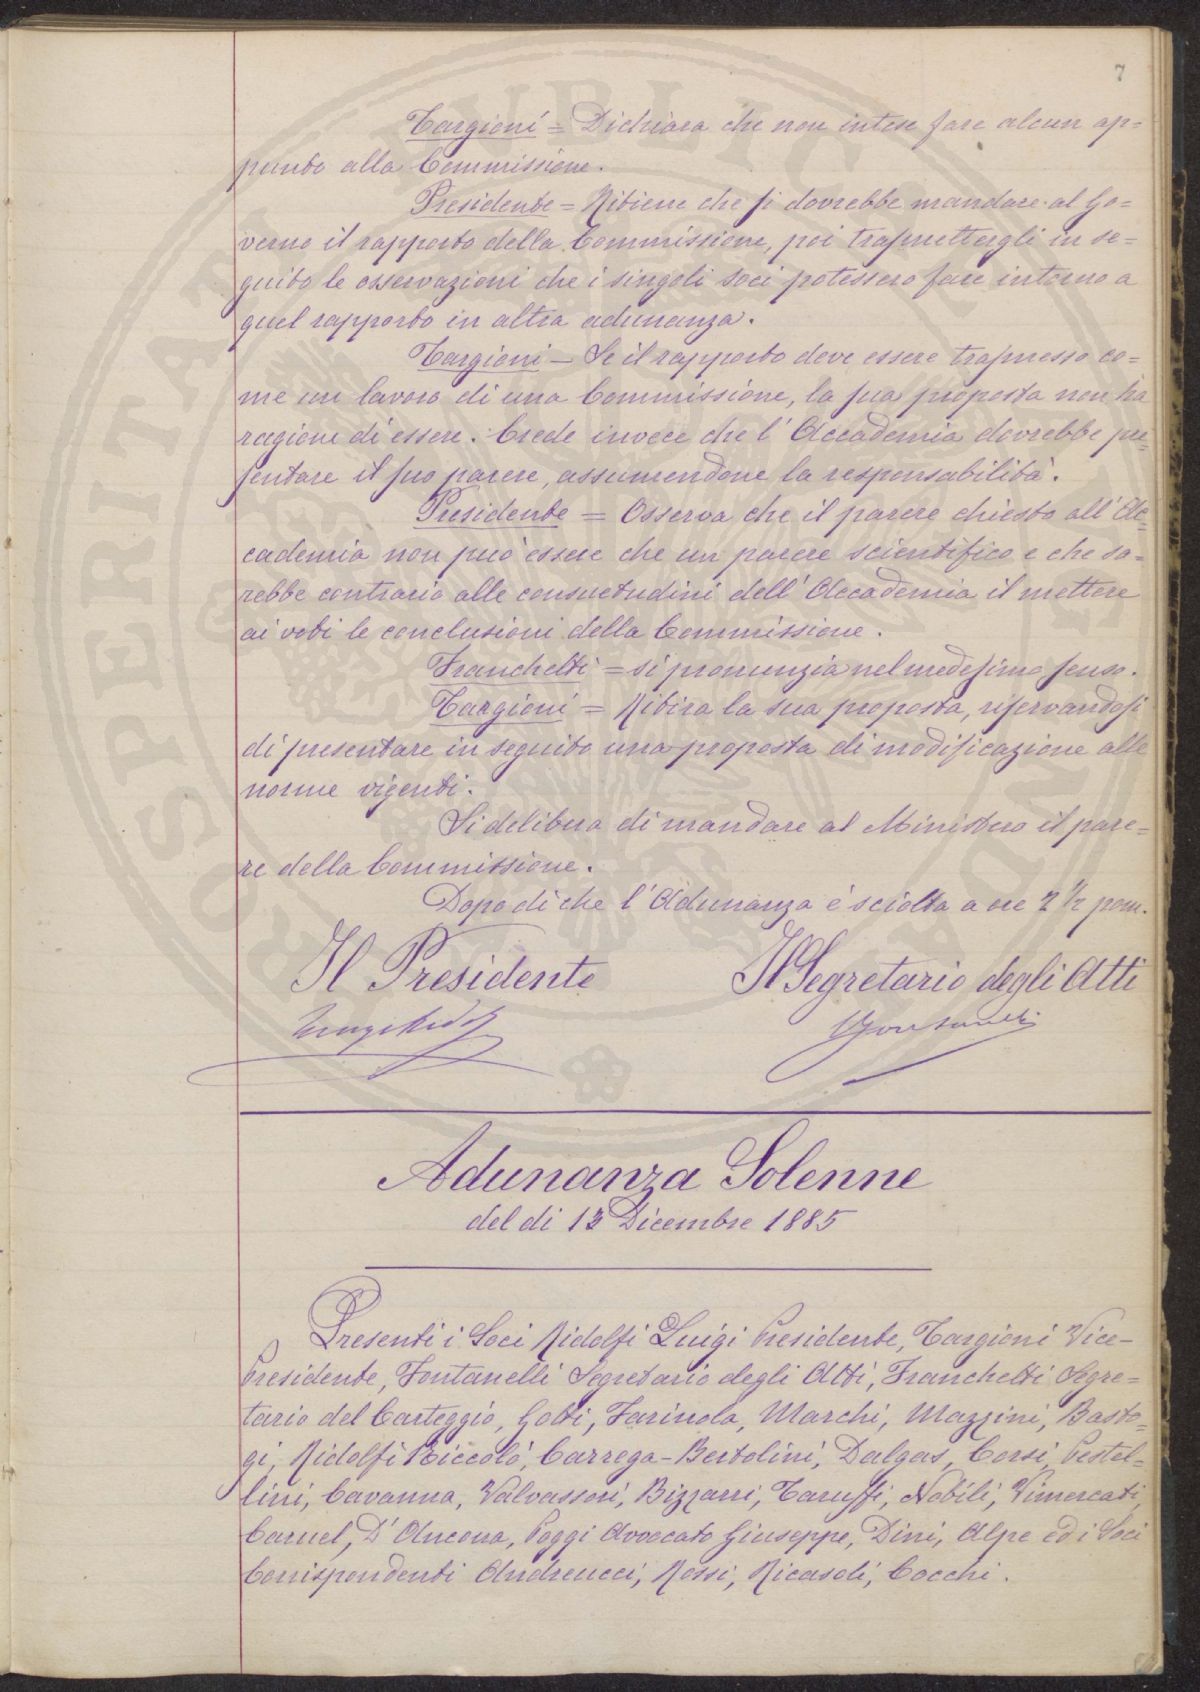 7
Targioni = Dichiara che non intese fare alcun ap=
punto alla Commissione.
Presidente = Ritiene che si dovrebbe mandare al Go=
verno il rapporto della Commissione, poi trasmettergli in se=
guito le osservazioni che i singoli soci potessero fare intorno a
quel rapporto in altra adunanza.
Targioni — Se il rapporto deve essere trasmesso co=
me un lavoro di una Commissione, la sua proposta non ha
ragione di essere. Crede invece che l'Accademia dovrebbe pre=
sentare il suo parere, assumendone la responsabilità.
Presidente = Osserva che il parere chiesto all'Ac=
cademia non può essere che un parere scientifico e che sa=
rebbe contrario alle consuetudini dell'Accademia il mettere
ai voti le conclusioni della Commissione.
Franchetti = si pronunzia nel medesimo senso.
Targioni = Ritira la sua proposta, riservandosi
di presentare in seguito una proposta di modificazione alle
norme vigenti.
Si delibera di mandare al Ministero il pare=
re della Commissione.
Dopo di che l'Adunanza è sciolta a ore 2 ½ pom.
Il Presidente Il Segretario degli Atti
Adunanza Solenne
del di 13 Dicembre 1885
Presenti i Soci Ridolfi Luigi Presidente, Targioni Vice-
Presidente, Fontanelli Segretario degli Atti, Franchetti Segre=
tario del Carteggio, Gotti, Farinola, Marchi, Mazzini, Basto=
gi, Ridolfi Niccolò, Carrega-Bertolini, Dalgas, Corsi, Pestel=
lini, Cavanna, Valvassori, Bizzarri, Taruffi, Nobili, Vimercati,
Caruel, D'Ancona, Poggi Avvocato Giuseppe, Dini, Alpe ed i Soci
Corrispondenti Andreucci, Rossi, Ricasoli, Cocchi.
PROSPERITATI PUBLICAE AUGENDAE